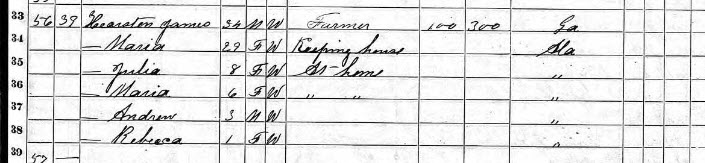 33 56 39 Hearston James 34 M W Farmer 100 300 Ga
34 — Maria 29 F W Keeping house Ala
35 — Julia 8 F W At home "
36 — Maria 6 F W " " "
37 — Andrew 3 M W "
38 — Rebecca 1 F W "
39 57 —